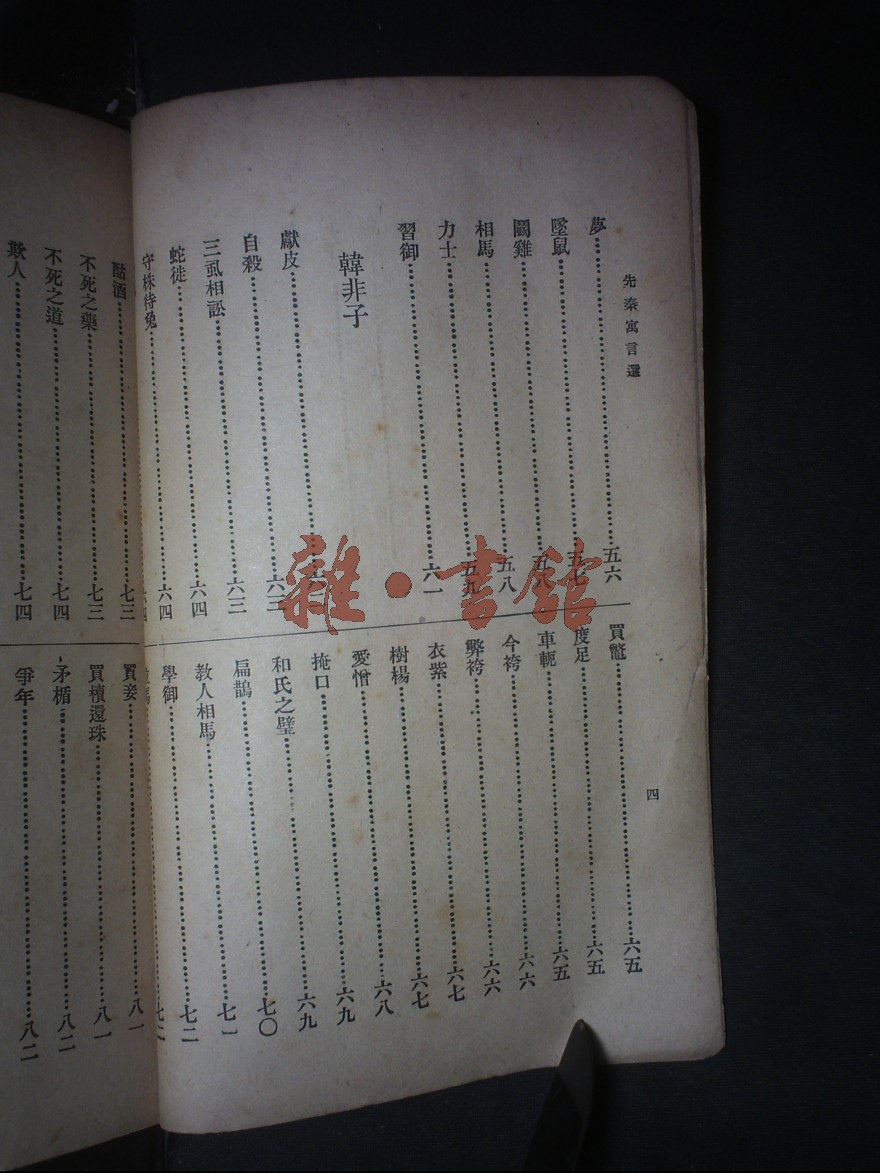 先秦寓言選
四
夢……五六
墜鼠……五七
鬭雞……五八
相馬……五八
力士……五九
習御……六一
韓非子
獻皮……
自殺……六二
三虱相訟……六三
蛇徙……六四
守株待兔……六四
買鼈……六五
度足……六五
車軛……六五
今袴……六六
弊袴……六六
衣紫……六七
樹楊……六七
愛憎……六八
掩口……六九
和氏之璧……六九
扁鵲……七〇
教人相馬……七一
學御……七二
酤酒……七三
不死之藥……七三
不死之道……七四
欺人……七四
賣妾……八一
買櫝還珠……八一
矛楯……八二
爭年……八二
雜·書館